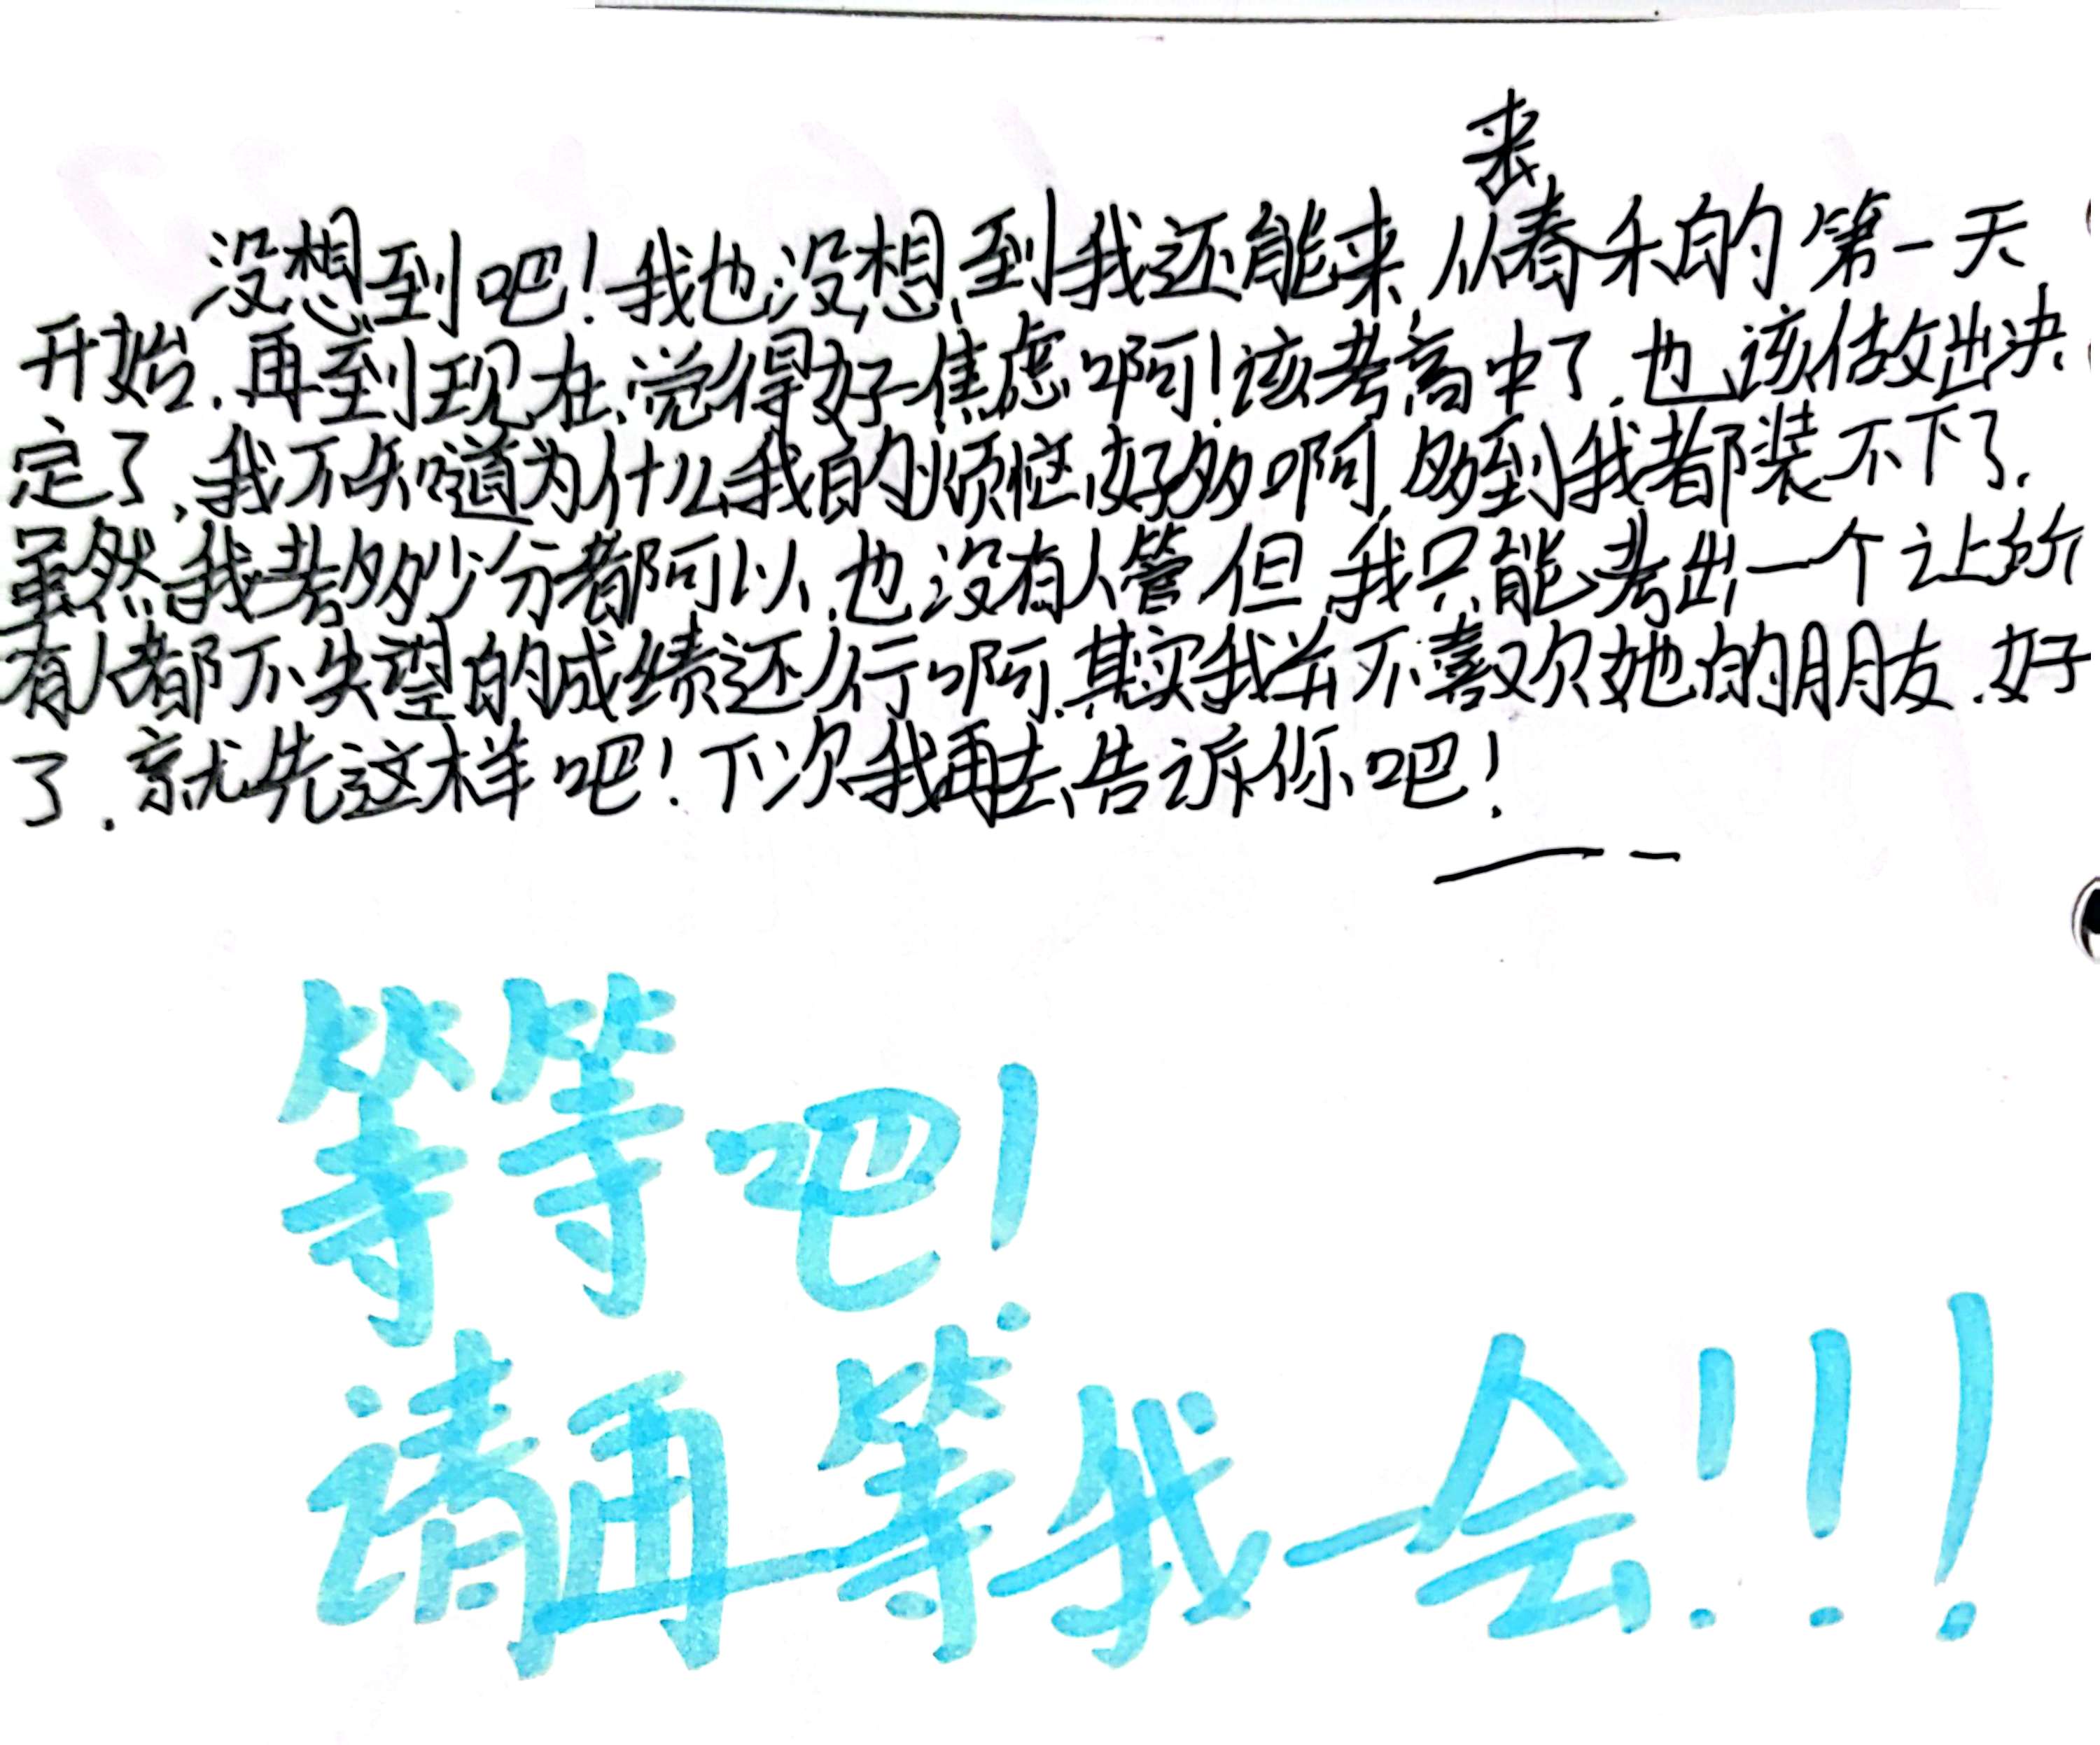 来
没想到吧！我也没想到我还能来，从春禾的第一天
开始，再到现在，觉得好焦虑啊！该考高中了，也该做出决
定了，我不知道为什么我的烦恼好多啊，多到我都装不下了．
虽然我考多少分都可以，也没有人管，但我只能考出一个让所
有人都不失望的成绩还行啊，其实我并不喜欢她的朋友．好
了．就先这样吧！下次我再去告诉你吧！
等等吧！
请再等我一会！！！